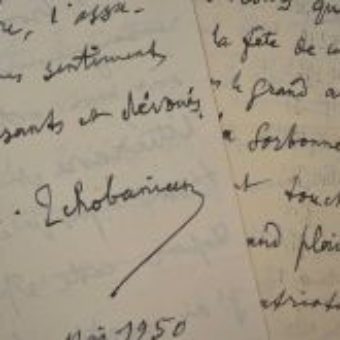 re, l'assu-
sentiments
sants et dévoués.
Tchobanian
Mai 1950
qu
la fête de c
le grand a
la Sorbonne
et touch
and plai
atriot